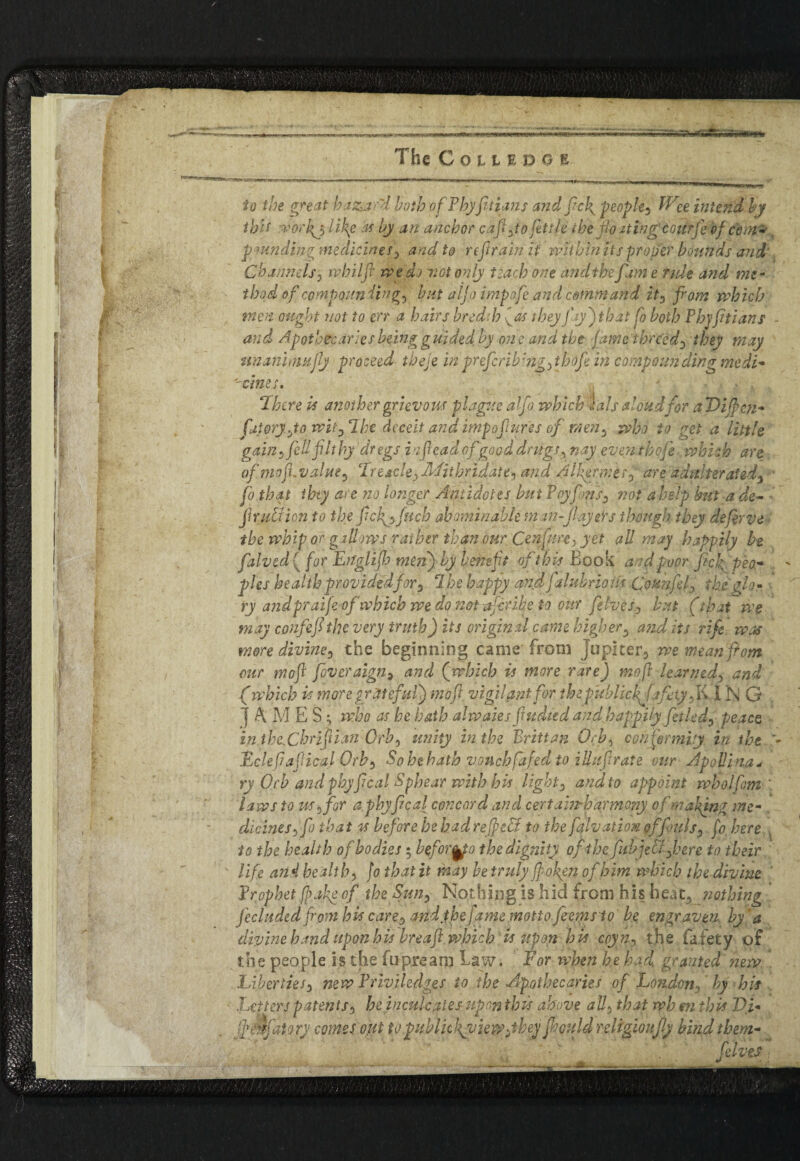 The COLLEDGE
to the great hazard both of Phyſitians and ſick people, Wee intend by
this work, like as by an anchor caſt, to ſettle the floating courſe of com-
pounding medicines, and to reſtrain it within its proper bounds and
Channels, whilſt we do not only teach one and the ſame rule and me-
thod of compounding, but alſo impoſe and command it, from which
men ought not to err a hairs bredth (as they ſay) that ſo both Phyſitians
and Apothecaries being guided by one and the ſame threed, they may
unanimuſly proceed theſe in preſcribing, thoſe in compounding medi-
cines.
There is another grievous plague alſo which cals aloud for a Diſpen-
ſatory, to wit, The deceit and impoſtures of men, who to get a little
gain, ſell filthy dregs inſtead of good drugs, nay even thoſe which are
of moſt value, Treacle, Mithridate, and Alkermes, are adulterated,
ſo that they are no longer Antidotes but Poyſons, not a help but a de-
ſtruction to the ſick, ſuch abominable man-ſlayers though they deſerve
the whip or gallows rather than our Cenſure, yet all may happily be
ſalved (for Engliſh men) by benefit of this Book and poor ſick peo-
ples health provided for, The happy and ſalubrious Counſel, the glo-
ry and praiſe of which we do not aſcribe to our ſelves, but (that we
may confeſs the very truth) its original came higher, and its riſe was
more divine, the beginning came from Jupiter, we mean from
our moſt ſoveraign, and (which is more rare) moſt learned, and
(which is more grateful) moſt vigilant for the publick ſafety, KING
JAMES; who as he hath alwaies ſtudied and happily ſetled, peace
in the Chriſtian Orb, unity in the Brittan Orb, conformity in the
Ecleſiaſtical Orb, So he hath vouchſafed to illuſtrate our Apollina-
ry Orb and phyſical Sphear with his light, and to appoint wholſom
laws to us, for a phyſical concord and certain harmony of making me-
dicines, ſo that as before he had reſpect to the ſalvation of ſouls, ſo here
to the health of bodies; before to the dignity of the ſubject, here to their
life and health, ſo that it may be truly ſpoken of him which the divine
Prophet ſpake of the Sun, Nothing is hid from his heat, nothing
ſecluded from his care, and the ſame motto ſeems to be engraven by a
divine hand upon his breaſt which is upon his coyn, the ſafety of
the people is the ſupream Law. For when he had granted new
Liberties, new Priviledges to the Apothecaries of London, by his
Letters patents, he inculcates upon this above all, that when this Di-
ſpenſatory comes out to publick view, they ſhould religiouſly bind them-
ſelves